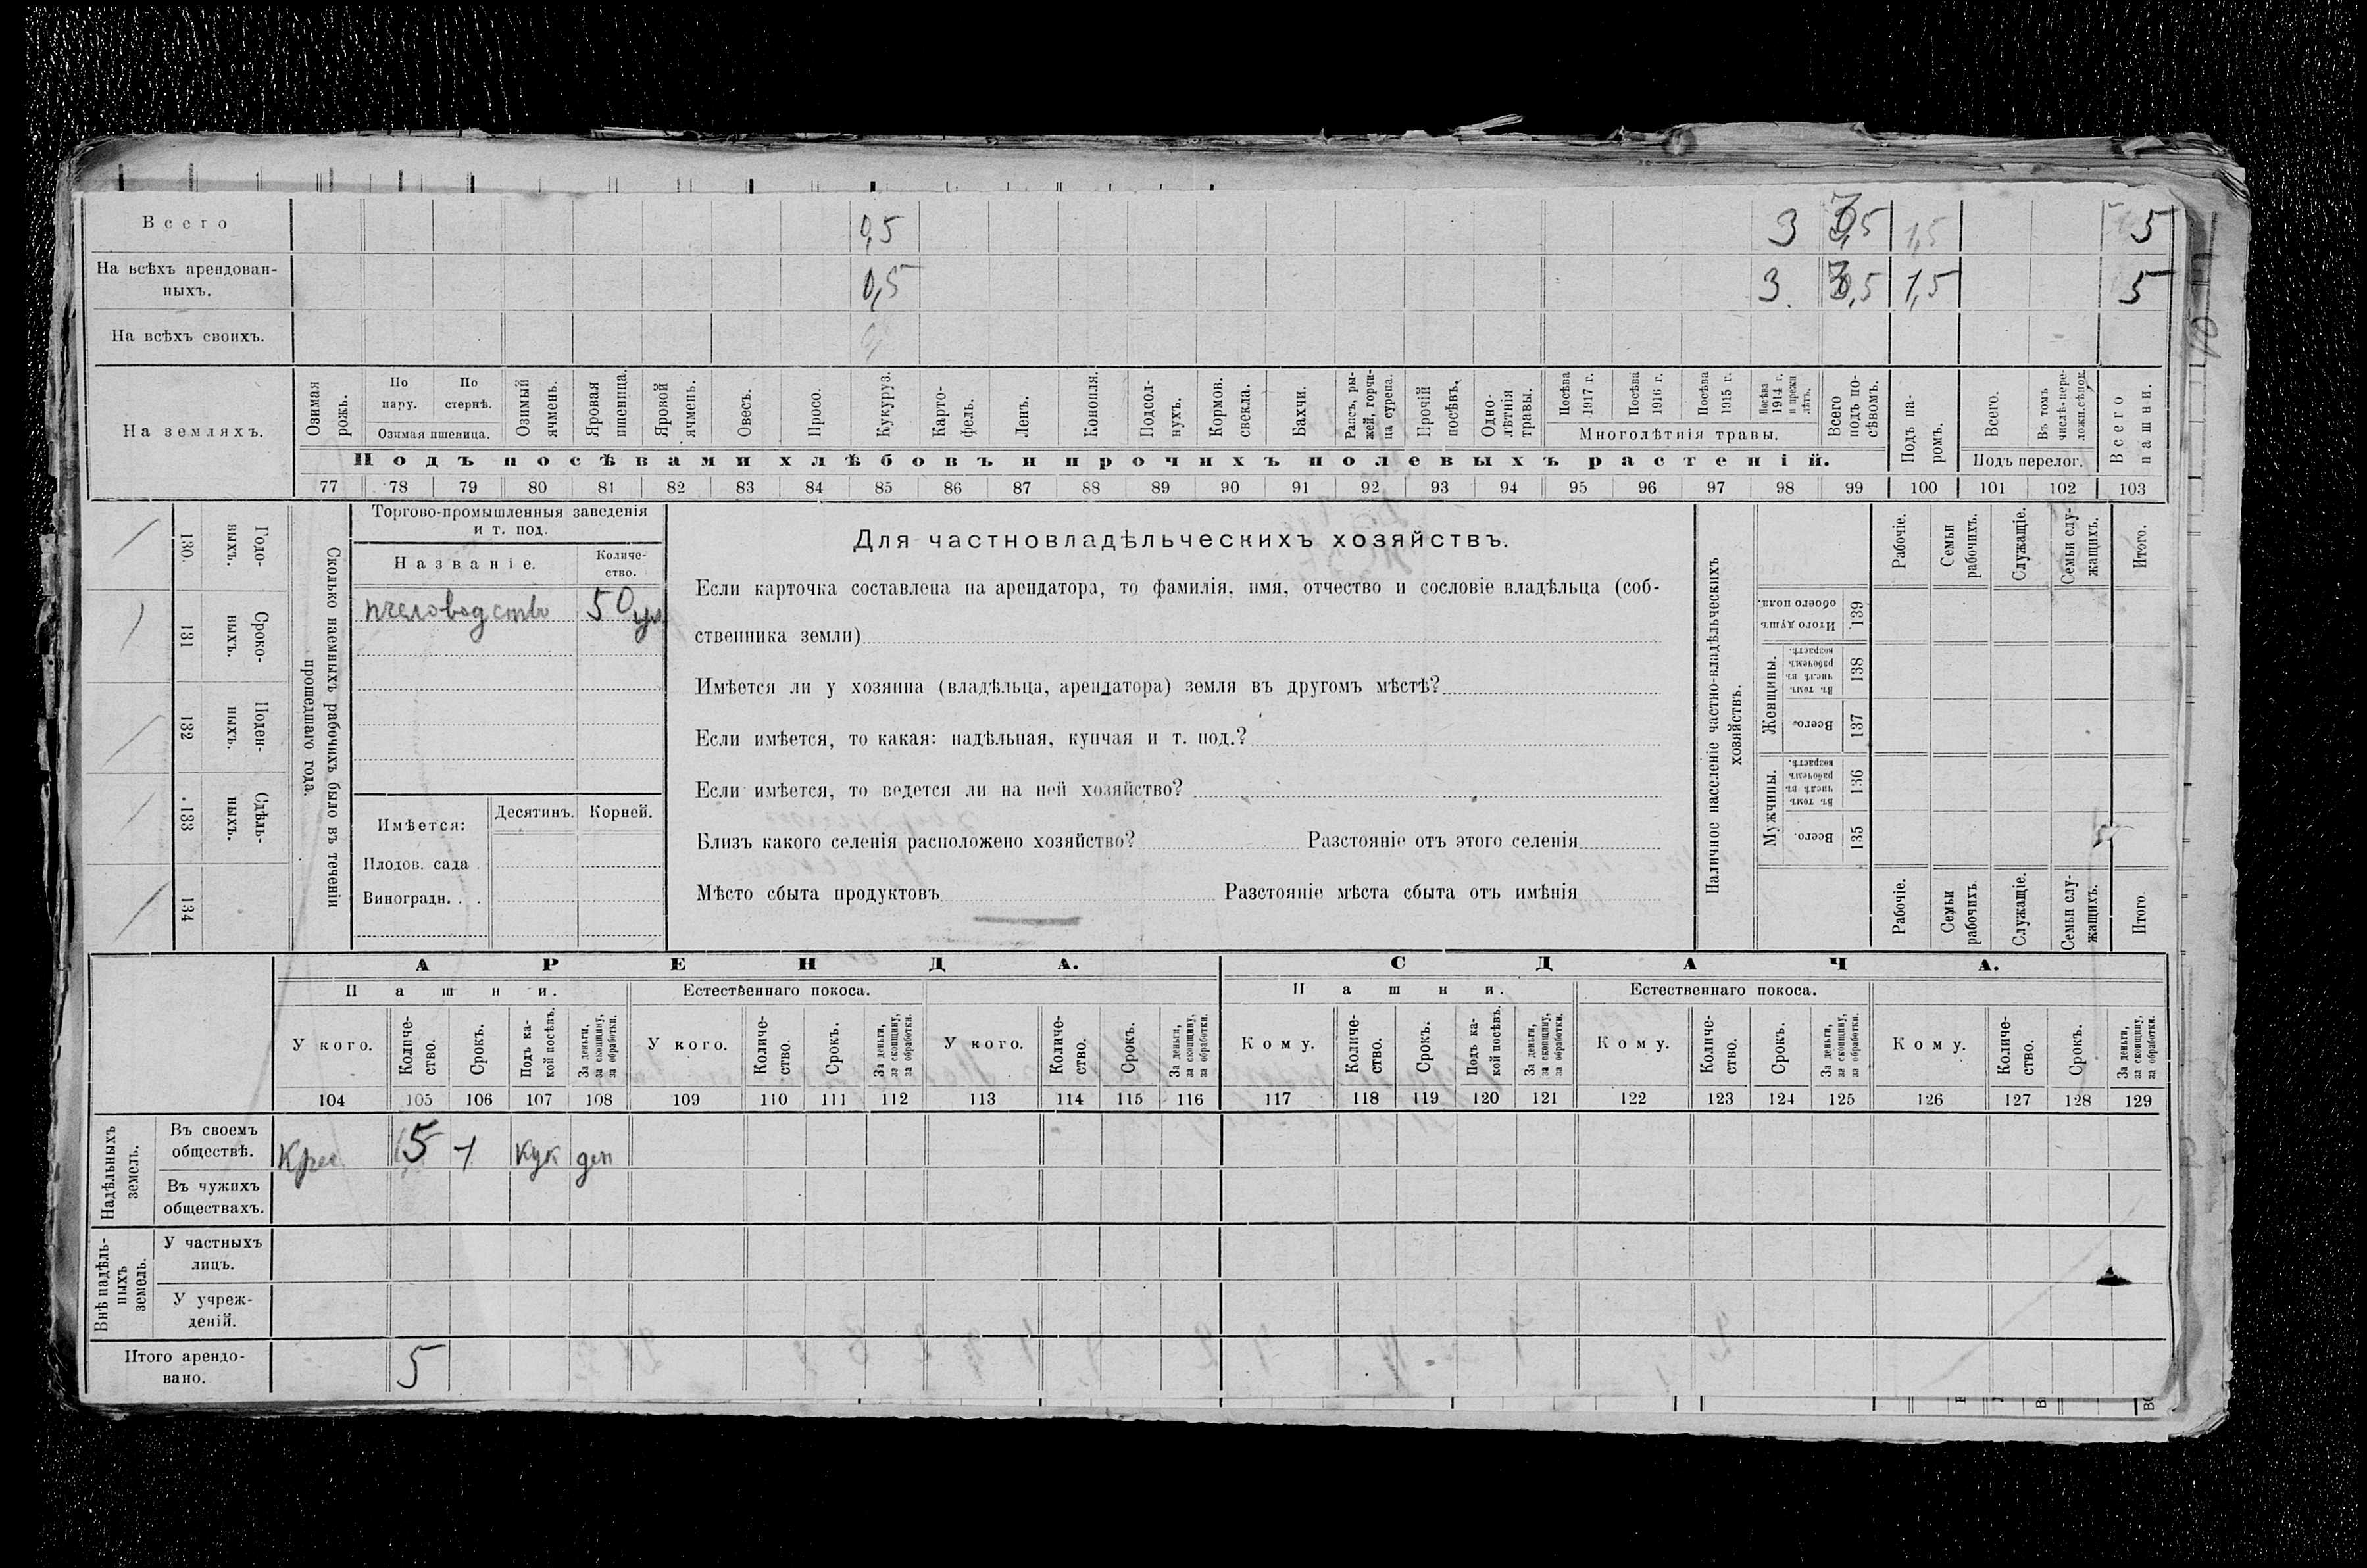 Всего 0,5 3 3,5 1,5 5
На всѣхъ арендован-
ныхъ. 0,5 3. 3,5 1,5 5
На всѣхъ своихъ.
На земляхъ.
Озимая рожь.
По пару.
По стернѣ.
Озимая пшеница.
Озимый ячмень.
Яровая пшеница.
Яровой ячмень.
Овесъ.
Просо.
Кукуруз.
Карто-фель.
Ленъ.
Конопля.
Подсол-нухъ.
Кормов. свекла.
Бахчи.
Рапсъ, ры-жей, горчи-ца сурепа.
Прочій посѣвъ.
Одно-лѣтнія травы.
Посѣва 1917 г.
Посѣва 1916 г.
Посѣва 1915 г.
Посѣва 1914 г. и прежн лѣтъ.
Многолѣтнія травы.
Всего подъ по-сѣвомъ.
Подъ па-ромъ.
Всего.
Въ томъ числѣ-пере-ложн.сѣнок.
Подъ перелог.
Всего пашни.
Подъ посѣвами хлѣбовъ и прочихъ полевыхъ растеній.
77 78 79 80 81 82 83 84 85 86 87 88 89 90 91 92 93 94 95 96 97 98 99 100 101 102 103
130. Годо-ныхъ.
131 Сроко-ныхъ.
132 Поден-ныхъ.
133 Сдѣль-ныхъ.
134
Сколько наемныхъ рабочихъ было въ теченіи
прошедшаго года.
Торгово-промышленныя заведенія
и т. под.
Названіе.
Количе-
ство.
пчеловодство 50 ул
Имѣется:
Десятинъ. Корней.
Плодов. сада
Виноградн. . .
Для частновладѣльческихъ хозяйствъ.
Если карточка составлена на арендатора, то фамилія, имя, отчество и сословіе владѣльца (соб-
ственника земли)
Имѣется ли у хозяина (владѣльца, арендатора) земля въ другомъ мѣстѣ?
Если имѣется, то какая: надѣльная, купчая и т. под.?
Если имѣется, то ведется ли на ней хозяйство?
Близъ какого селенія расположено хозяйство? Разстояніе отъ этого селенія
Мѣсто сбыта продуктовъ Разстояніе мѣста сбыта отъ имѣнія
Наличное населеніе частно-владѣльческихъ
хозяйствъ.
Итого душъ обоего пола. 139
Женщины.
Въ томъ числѣ въ рабочемъ возрастѣ. 138
Всего. 137
Мужчины.
Въ томъ числѣ въ рабочемъ возрастѣ. 136
Всего. 135
Рабочіе.
Семьи рабочихъ.
Служащіе.
Семьи слу-жащихъ.
Итого.
Рабочіе.
Семьи рабочихъ
Служащіе.
Семьи слу-жащихъ.
Итого
АРЕНДА. СДАЧА.
Пашни. Естественнаго покоса. Пашни. Естественнаго покоса.
У кого. Количе-ство. Срокъ. Подъ ка-кой посѣвъ. За деньги, за скопщину, за обработки.
У кого. Количе-ство. Срокъ. За деньги, за скопщину, за обработки.
У кого. Количе-ство. Срокъ. За деньги, за скопщину, за обработки.
Кому. Количе-ство. Срокъ. Подъ ка-кой посѣвъ. За деньги, за скопщину, за обработки.
Кому. Количе-ство. Срокъ. За деньги, за скопщину, за обработки.
Кому. Количе-ство. Срокъ. За деньги, за скопщину, за обработки.
104 105 106 107 108 109 110 111 112 113 114 115 116 117 118 119 120 121 122 123 124 125 126 127 128 129
Надѣльныхъ земель.
Въ своемъ
обществѣ. Крес 5 1 кук ден
Въ чужихъ
обществахъ.
Внѣ надѣль-ныхъ земель.
У частныхъ
лицъ.
У учреж-
деній.
Итого арендо-
вано. 5